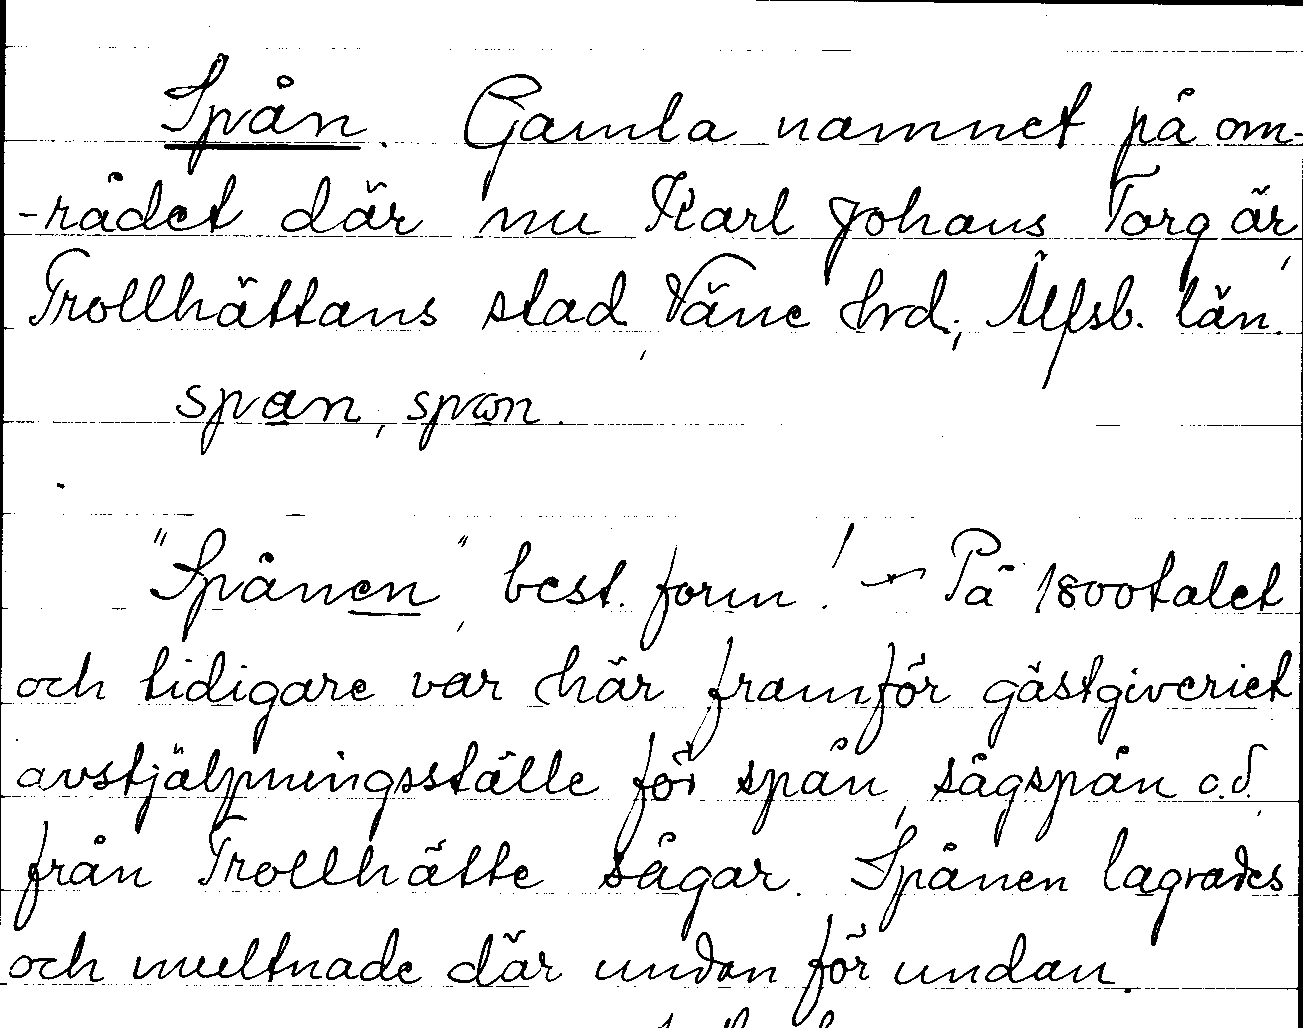 Spån. Gamla namnet på om-
-rådet där nu Karl Johans Torg är,
Trollhättans stad, Väne hrd., Älfsb. län.
span, spɷn.
"Spånen", best. form! - På 1800talet
och tidigare var här framför gästgiveriet
avstjälpningsställe för spån, sågspån o.d.
från Trollhätte sågar. Spånen lagrades
och multnade där undan för undan.